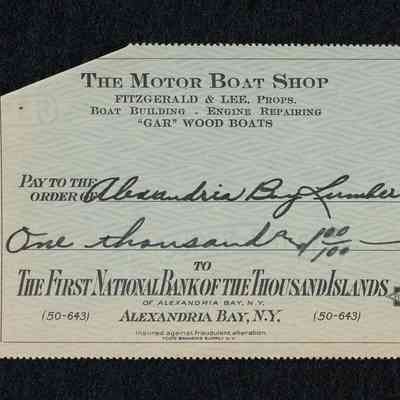 THE MOTOR BOAT SHOP
FITZGERALD & LEE, PROPS.
BOAT BUILDING - ENGINE REPAIRING
"GAR" WOOD BOATS
PAY TO THE
ORDER OF Alexandria Bay Lumber
One thousand & 00/100
TO
THE FIRST NATIONAL BANK OF THE THOUSAND ISLANDS
OF ALEXANDRIA BAY, N.Y.
(50-643) ALEXANDRIA BAY, N.Y. (50-643)
Insured against fraudulent alteration.
TODD BANKERS SUPPLY N.Y.